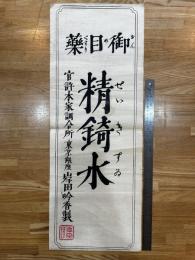 御目藥
おんめぐすり
精錡水
せいきすゐ
官許本家調合所東京銀座岸田吟香製